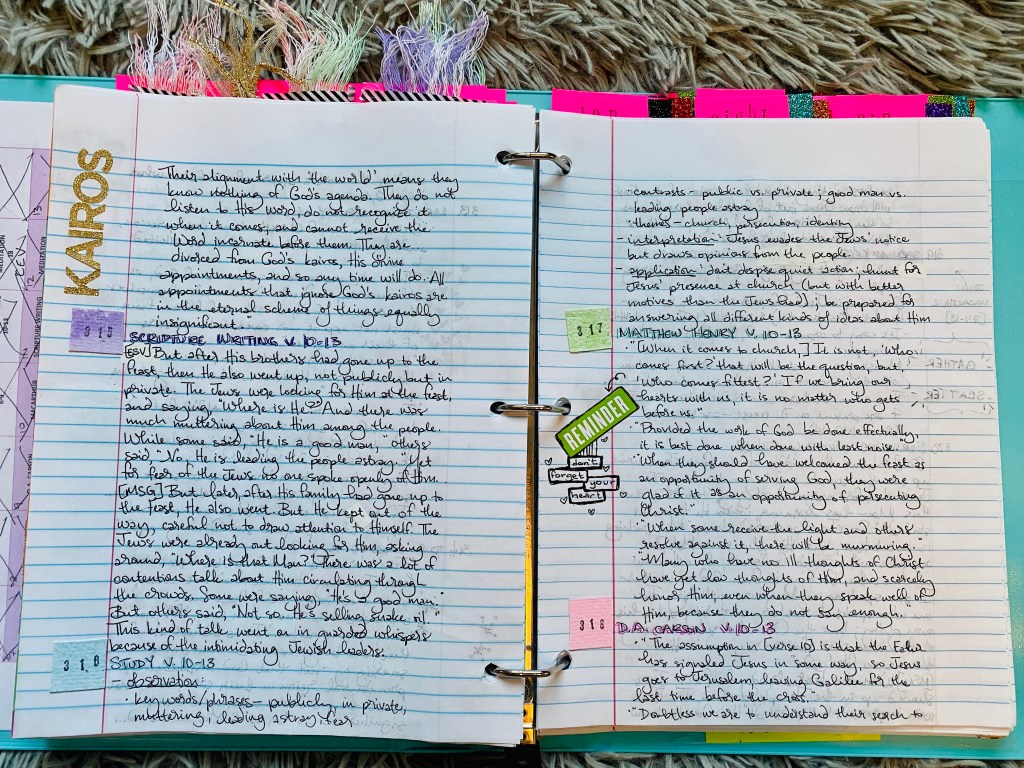 KAIROS
Their alignment with 'the world' means they
know nothing of God's agenda. They do not
listen to His word, do not recognize it
when it comes, and cannot receive the
Word incarnate before them. They are
divorced from God's kairos, His divine
appointments, and so any time will do. All
appointments that ignore God's kairos are
in the eternal scheme of things equally
insignificant.
315
SCRIPTURE WRITING V. 10-13
[ESV] But after His brothers had gone up to the
feast, then He also went up, not publicly but in
private. The Jews were looking for Him at the feast,
and saying, "Where is He?" And there was
much muttering about Him among the people.
While some said, "He is a good man," others
said, "No. He is leading the people astray." Yet
for fear of the Jews no one spoke openly of Him.
[MSG] But later, after His family had gone up to
the feast, He also went. But He kept out of the
way, careful not to draw attention to Himself. The
Jews were already out looking for Him, asking
around, "Where is that Man?" There was a lot of
contentious talk about Him circulating through
the crowds. Some were saying, "He's a good man."
But others said, "Not so. He's selling snake oil."
This kind of talk went on in guarded whispers
because of the intimidating Jewish leaders.
316
STUDY V. 10-13
- observation:
· key words/phrases - publicly, in private,
muttering, leading astray, fear
eight
· contrasts - public vs. private; good man vs.
leading people astray
· themes - church, persecution, identity
- interpretation: Jesus evades the Jews' notice
but draws opinions from the people.
- application: don't dispise quiet action; hunt for
Jesus' presence at church (but with better
motives than the Jews had); be prepared for
answering all different kinds of ideas about Him
317
MATTHEW HENRY V. 10-13
· "[When it comes to church,] It is not, 'Who
comes first?' that will be the question, but,
'Who comes fittest?' If we bring our
hearts with us, it is no matter who gets
before us."
REMINDER
don't
forget
your
heart
· "Provided the work of God be done effectually,
it is best done when done with least noise."
· "When they should have welcomed the feast as
an opportunity of serving God, they were
glad of it as an opportunity of persecuting
Christ."
· "When some receive the light and others
resolve against it, there will be murmuring."
· "Many who have no ill thoughts of Christ
have yet low thoughts of Him, and scarcely
honor Him, even when they speak well of
Him, because they do not say enough."
318
D.A. CARSON V. 10-13
· "The assumption in [verse 10] is that the Father
has signaled Jesus in some way, so Jesus
goes to Jerusalem, leaving Galilee for the
last time before the cross."
· "Doubtless we are to understand their search to